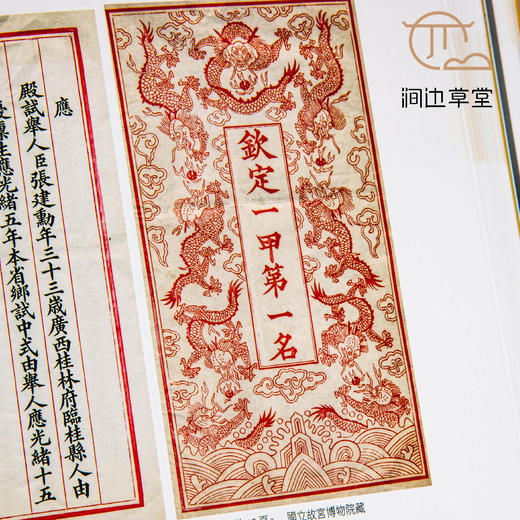 澗边草堂
應
殿試舉人臣張建勳年三十三歲廣西桂林府臨桂縣人由
廩生應光緒五年本省鄉試中式由舉人應光緒十五
欽定一甲第一名
頁。 國立故宮博物院藏